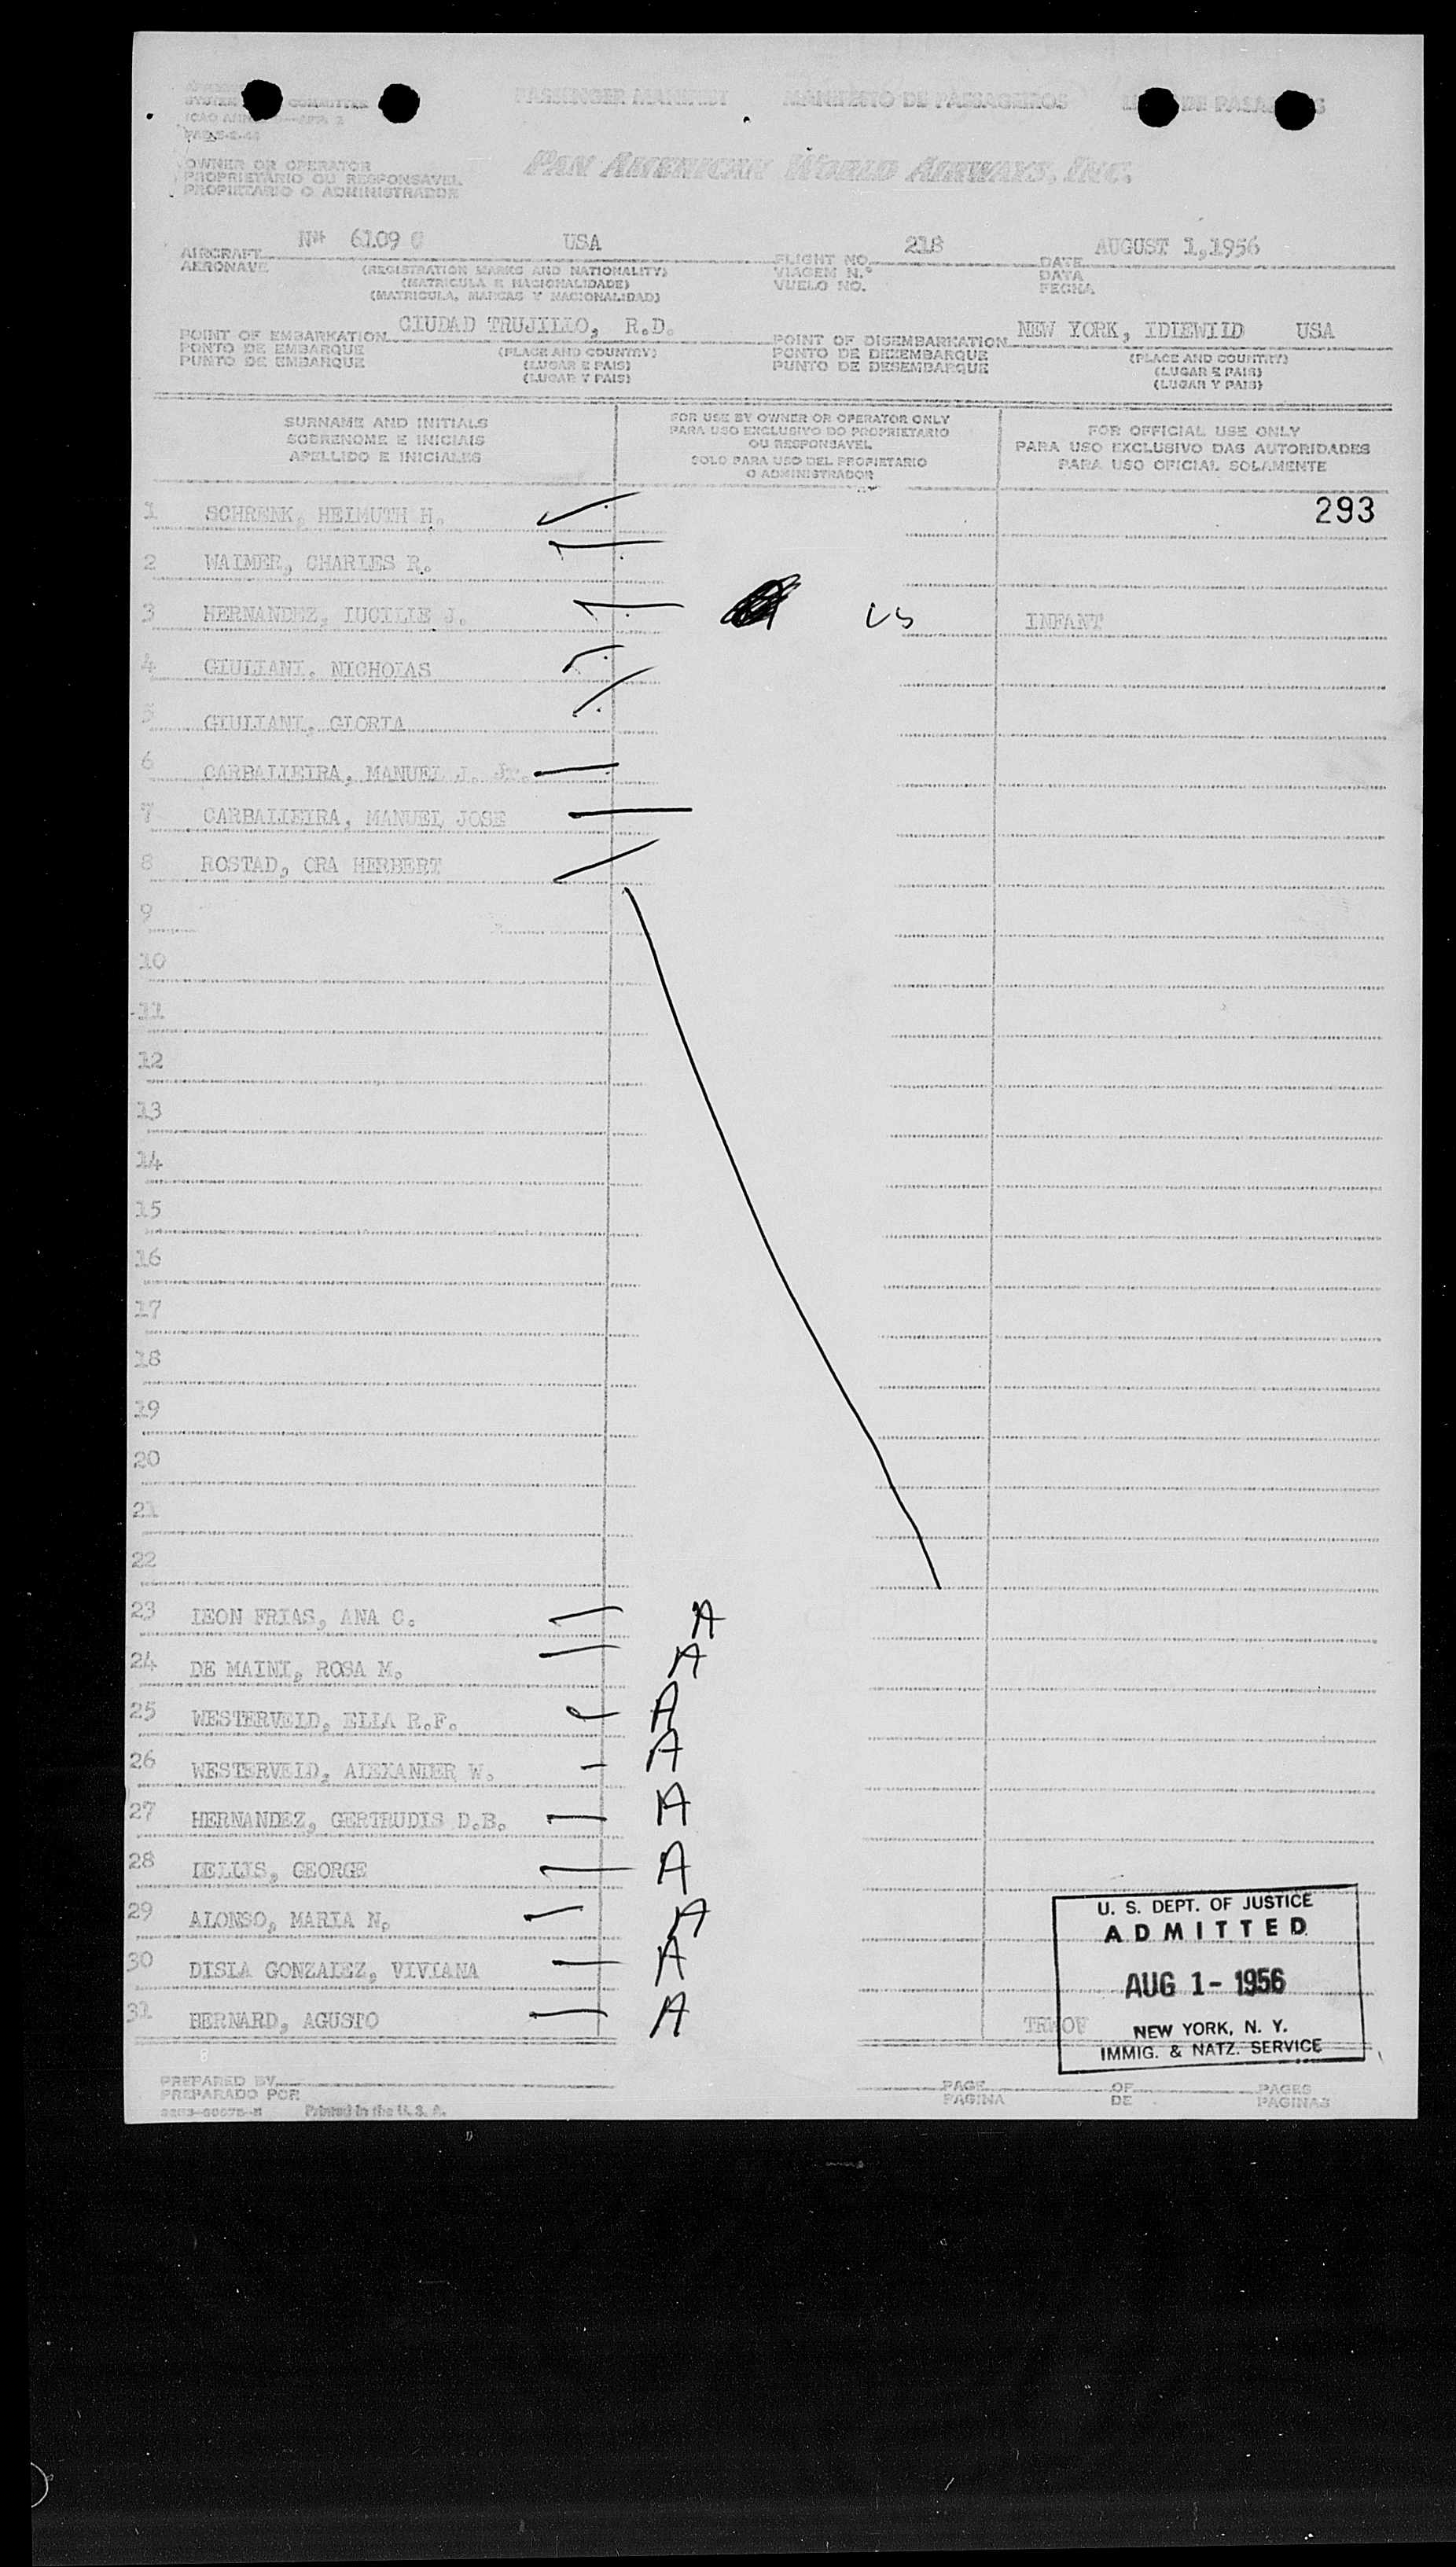 PASSENGER MANIFEST MANIFESTO DE PASSAGEIROS DE PASAJ S
SYSTEM COMMITTEE
ICAO
OWNER OR OPERATOR
PROPRIETARIO OU RESPONSAVEL
PROPIETARIO O ADMINISTRADOR
PAN AMERICAN WORLD AIRWAYS, INC.
AIRCRAFT N# 6109 C USA FLIGHT NO. 218 DATE AUGUST 1,1956
AERONAVE (REGISTRATION MARKS AND NATIONALITY) VIAGEM N.º DATA
(MATRICULA E NACIONALIDADE) VUELO NO. FECHA
(MATRICULA, MARCAS Y NACIONALIDAD)
POINT OF EMBARKATION CIUDAD TRUJILLO, R.D. POINT OF DISEMBARKATION NEW YORK, IDLEWILD USA
PONTO DE EMBARQUE (PLACE AND COUNTRY) PONTO DE DESEMBARQUE (PLACE AND COUNTRY)
PUNTO DE EMBARQUE (LUGAR E PAIS) PUNTO DE DESEMBARQUE (LUGAR E PAIS)
(LUGAR Y PAIS) (LUGAR Y PAIS)
SURNAME AND INITIALS
SOBRENOME E INICIAIS
APELLIDO E INICIALES
FOR USE BY OWNER OR OPERATOR ONLY
PARA USO EXCLUSIVO DO PROPRIETARIO
OU RESPONSAVEL
SOLO PARA USO DEL PROPIETARIO
O ADMINISTRADOR
FOR OFFICIAL USE ONLY
PARA USO EXCLUSIVO DAS AUTORIDADES
PARA USO OFICIAL SOLAMENTE
293
1 SCHRENK, HELMUTH H.
2 WALMER, CHARLES R.
3 HERNANDEZ, LUCILLE J. US INFANT
4 GIULIANI, NICHOLAS
5 GIULIANI, GLORIA
6 CARBALLEIRA, MANUEL J. Jr.
7 CARBALLEIRA, MANUEL JOSE
8 ROSTAD, ORA HERBERT
9
10
11
12
13
14
15
16
17
18
19
20
21
22
23 LEON FRIAS, ANA C. A
24 DE MAINI, ROSA M. A
25 WESTERVELD, ELLA R.F. A
26 WESTERVELD, ALEXANDER W. A
27 HERNANDEZ, GERTRUDIS D.B. A
28 LELLIS, GEORGE A
29 ALONSO, MARIA N. A
30 DISLA GONZALEZ, VIVIANA A
31 BERNARD, AGUSTO A TRWOV
U. S. DEPT. OF JUSTICE
ADMITTED
AUG 1 - 1956
NEW YORK, N. Y.
IMMIG. & NATZ. SERVICE
PREPARED BY PAGE OF PAGES
PREPARADO POR PAGINA DE PAGINAS
Printed in the U. S. A.